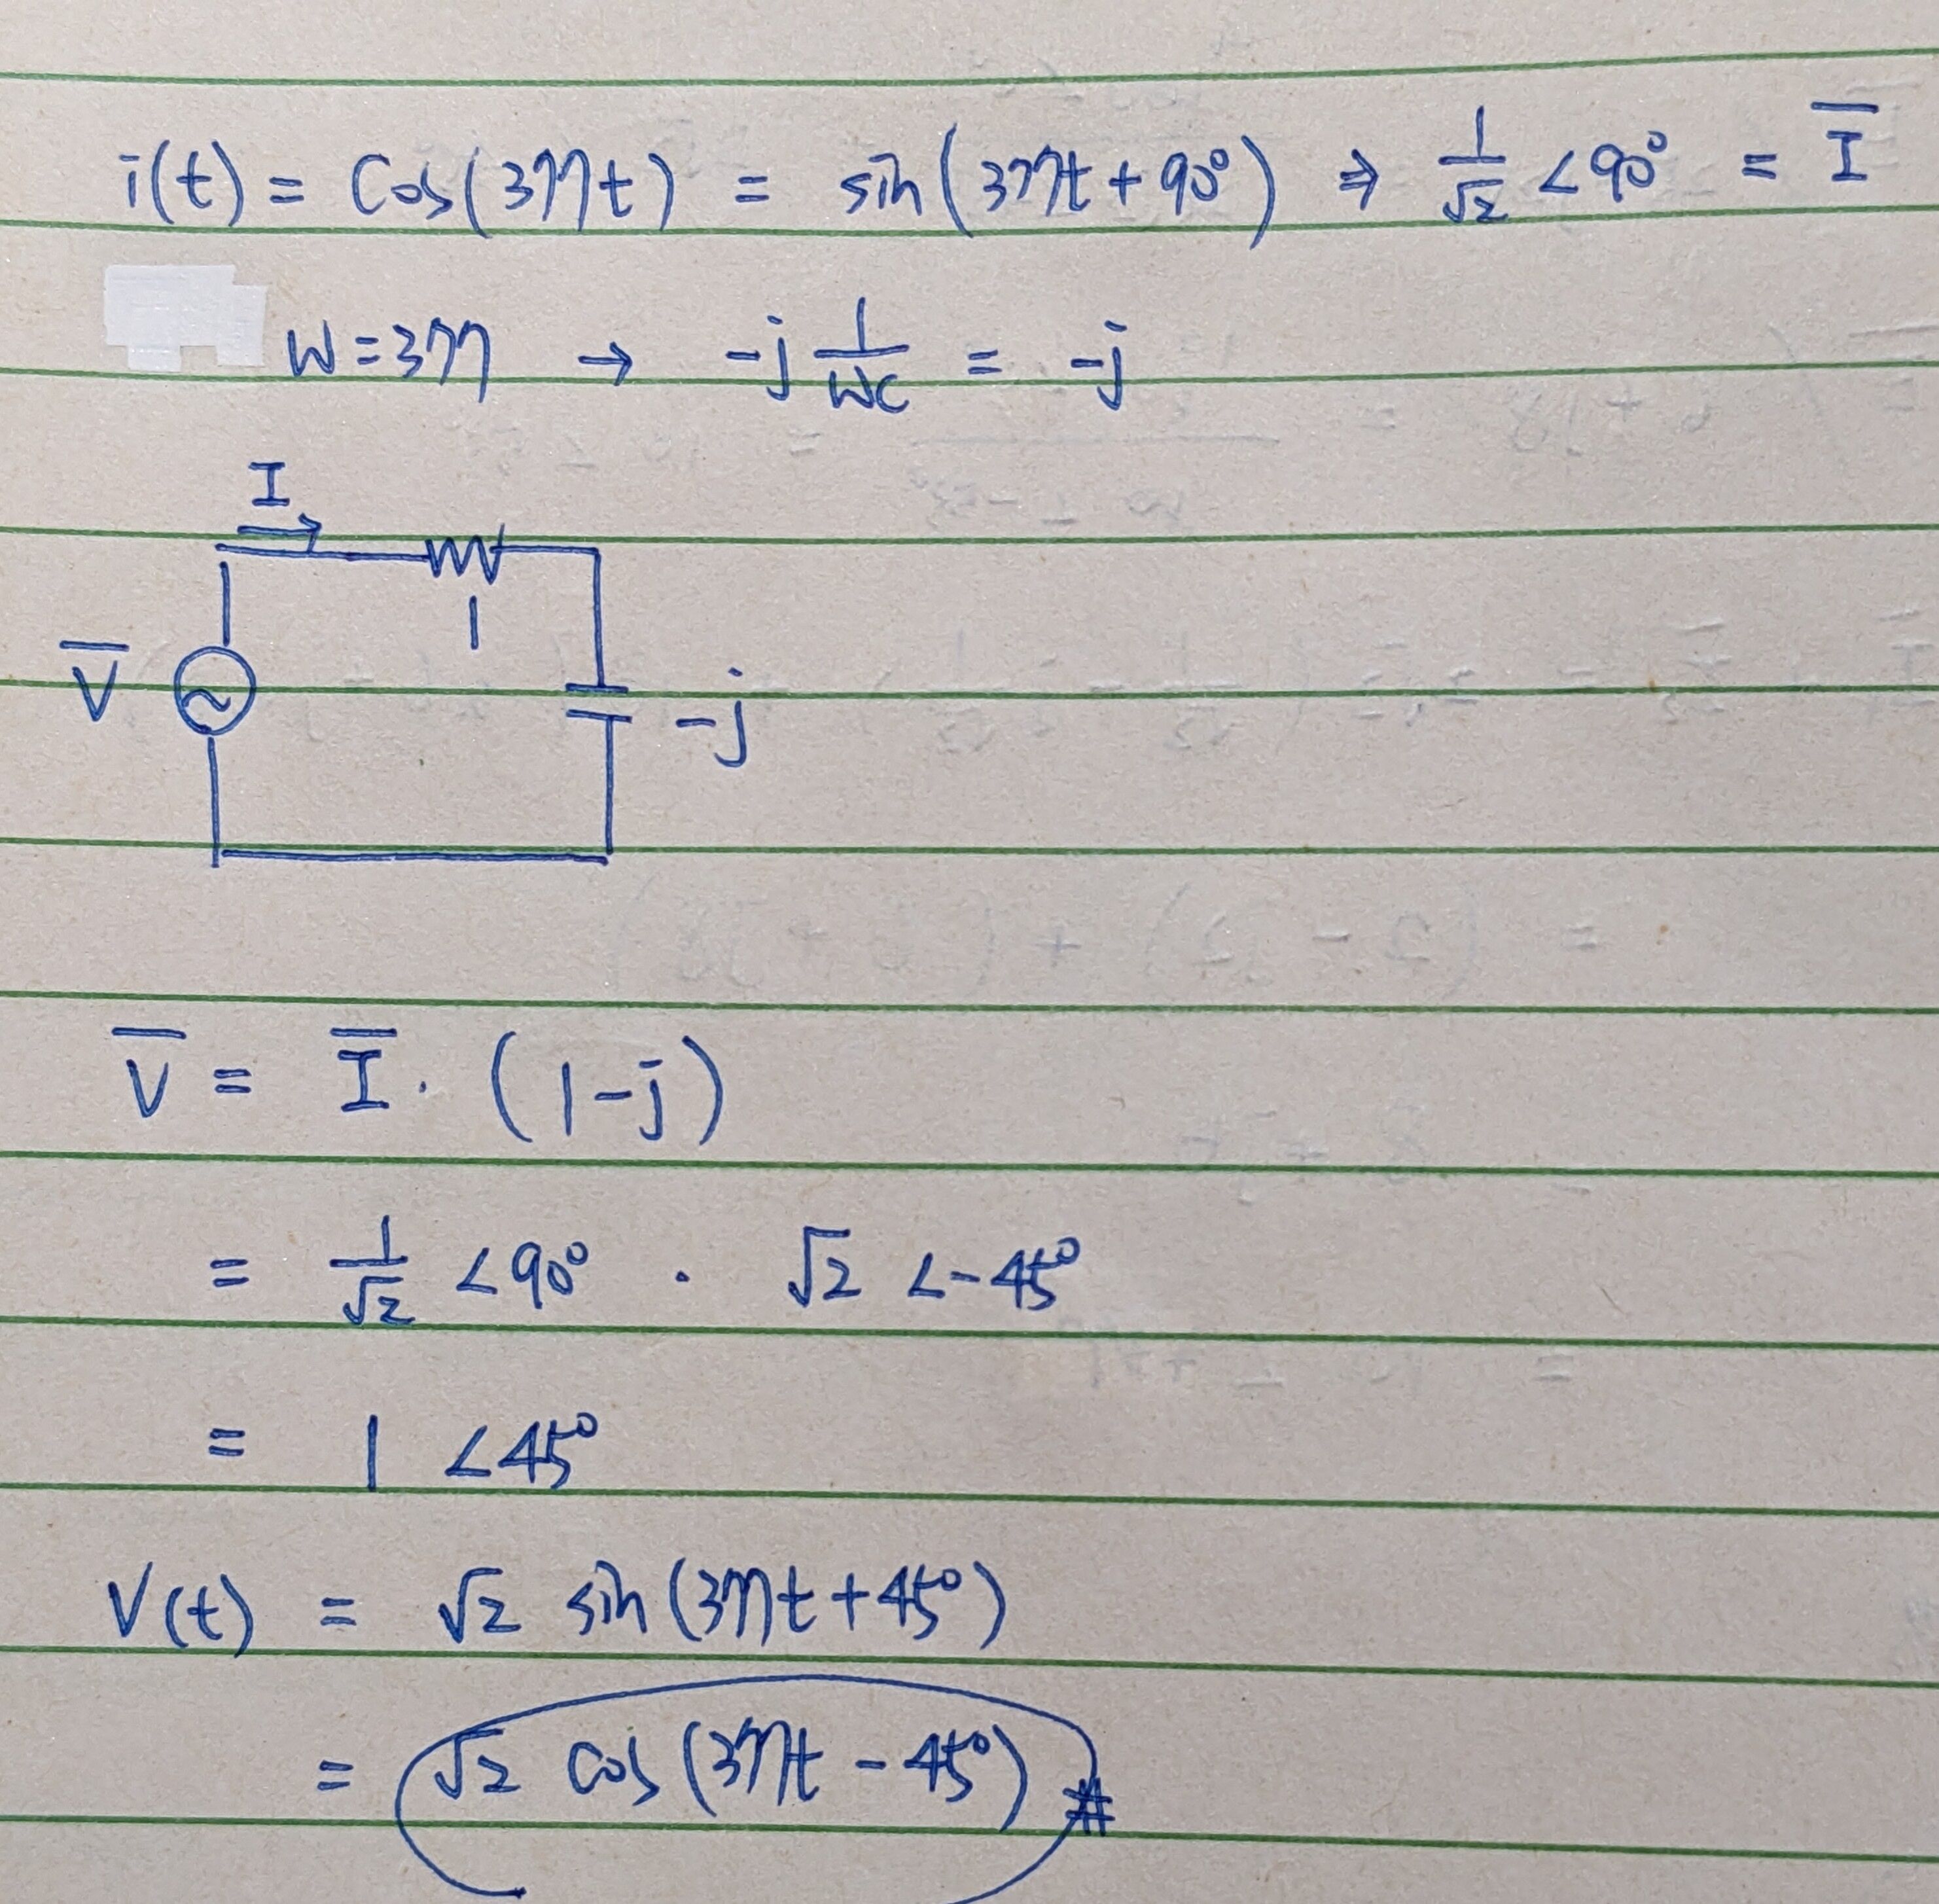 i(t) = Cos(377t) = sin(377t+90°) ⇒ 1/√2 ∠90° = I̅
W=377 → -j 1/WC = -j
I
1
V̅
-j
V̅ = I̅ · (1-j)
= 1/√2 ∠90° · √2 ∠-45°
= 1 ∠45°
V(t) = √2 sin(377t+45°)
= √2 cos(377t - 45°) #